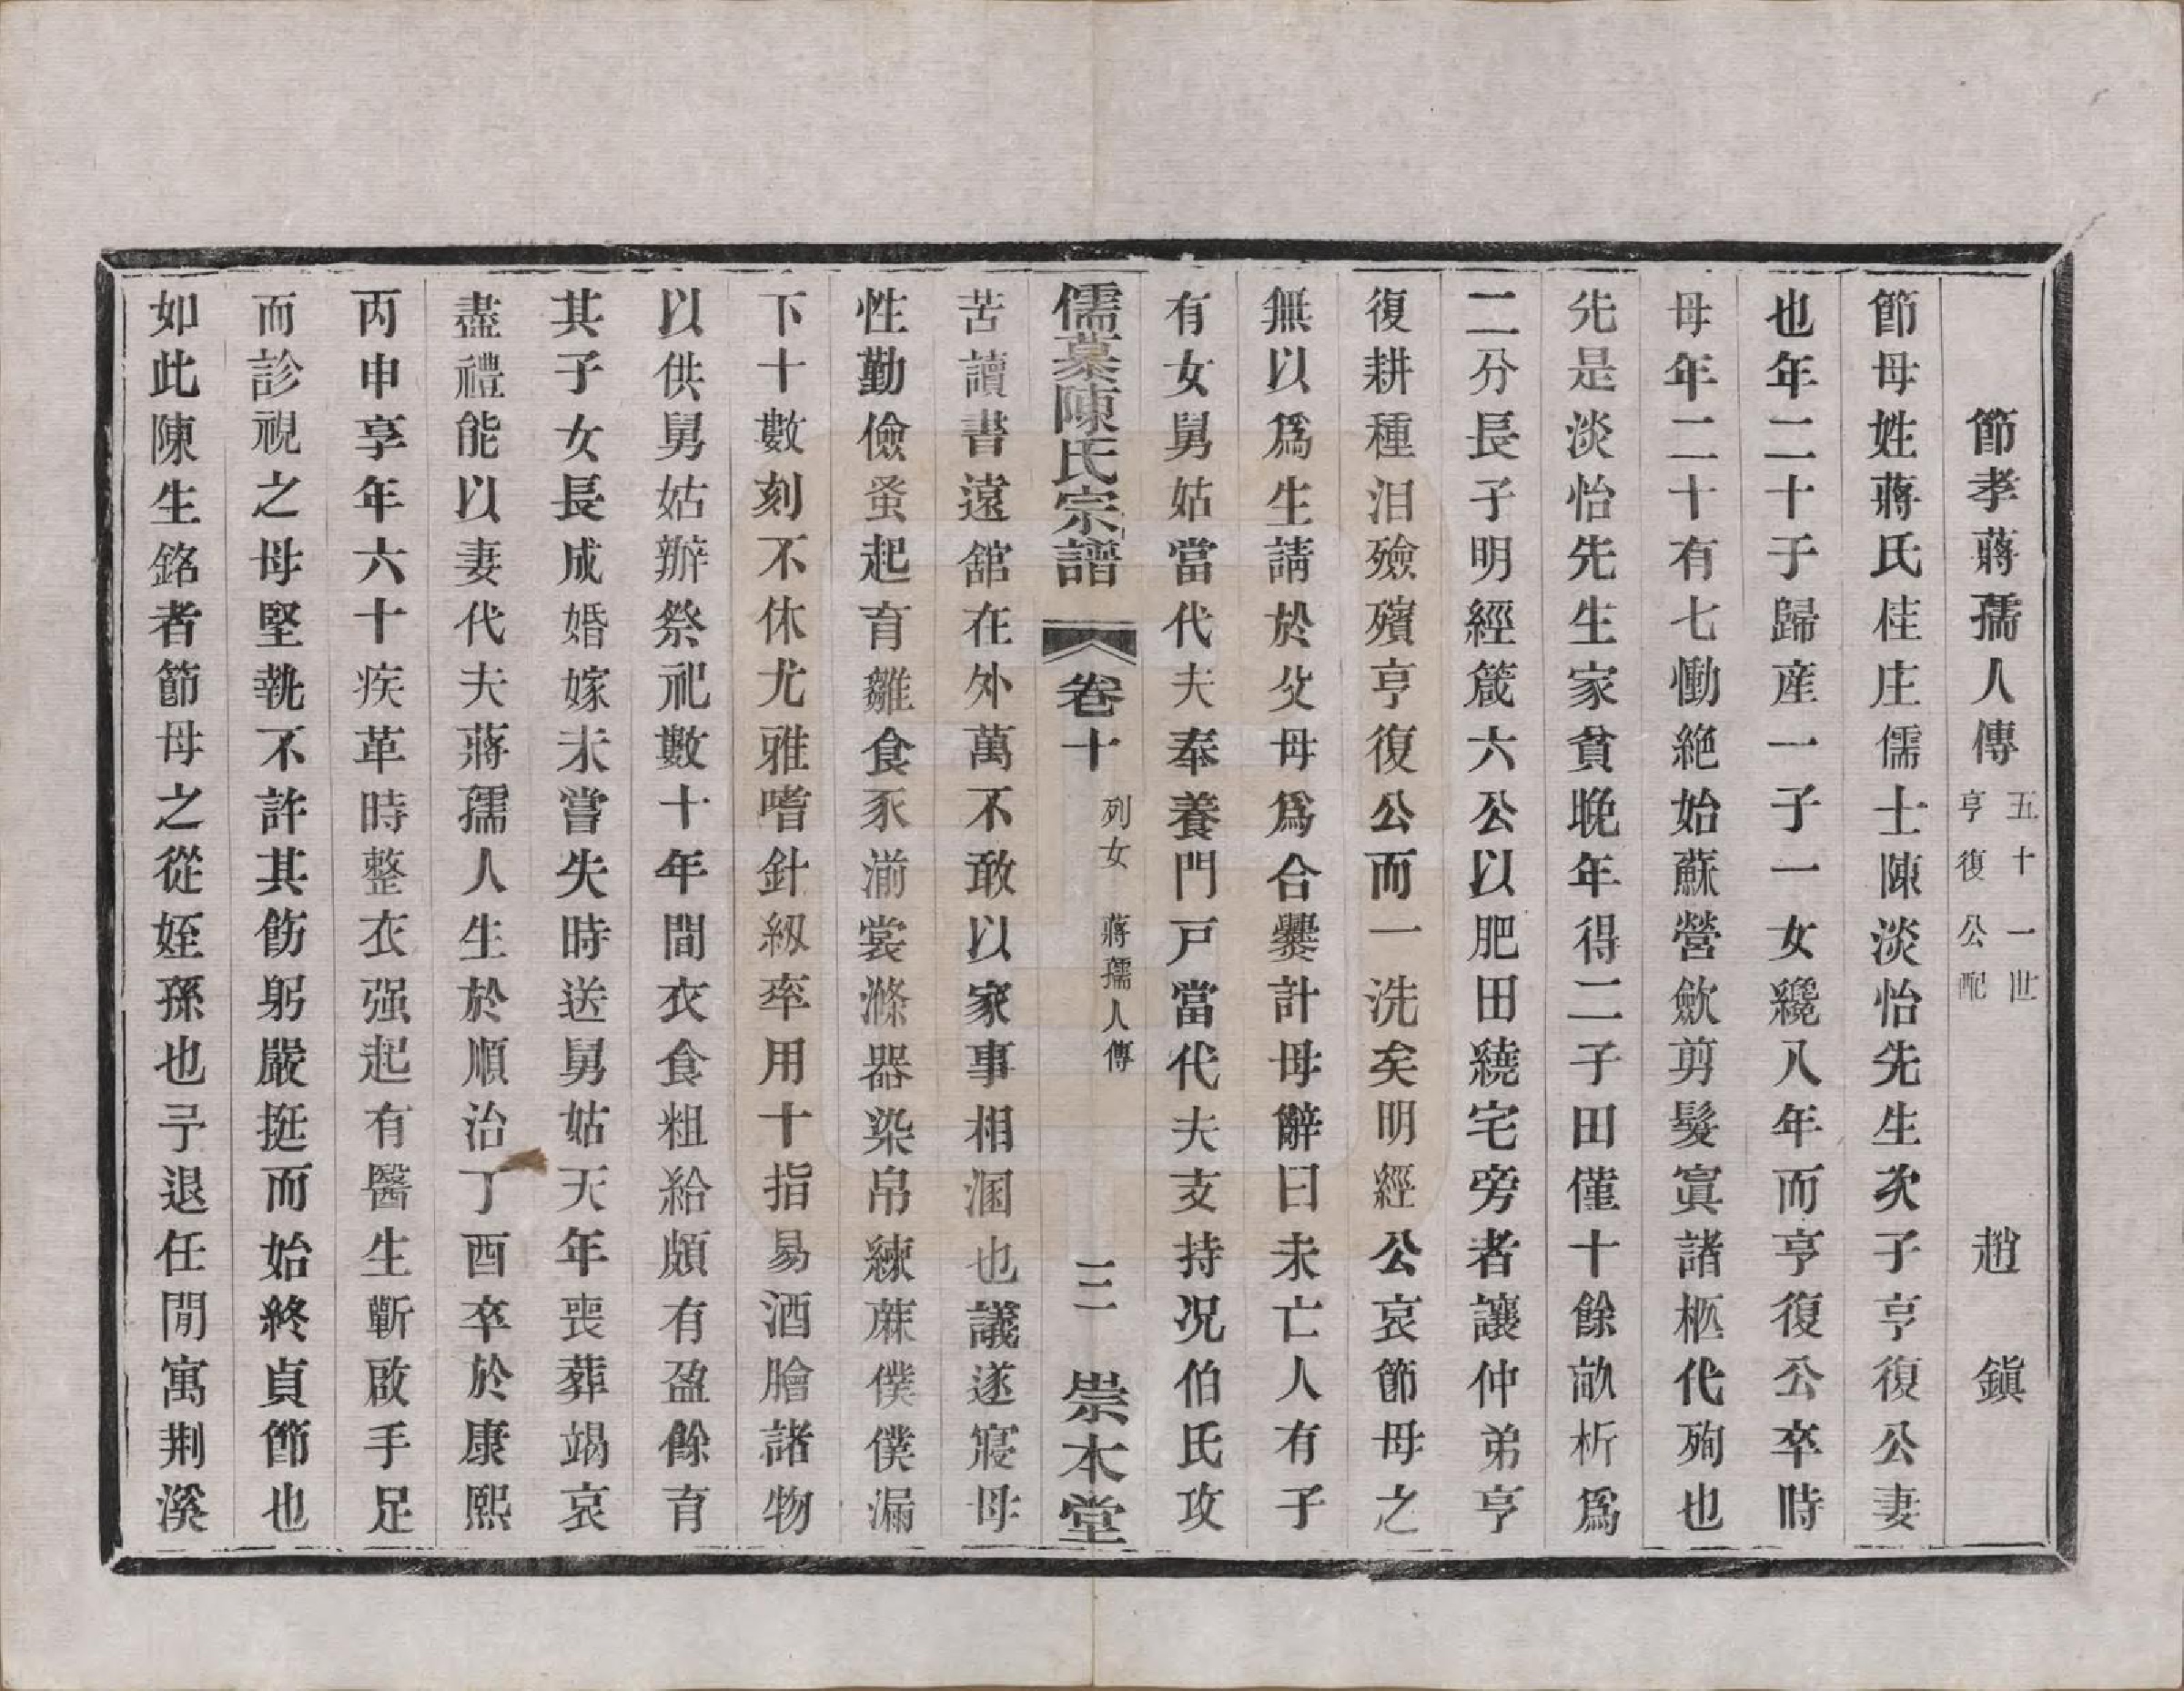 節孝蔣孺人傳 五十一世亨復公配 趙鎭
節母姓蔣氏佳庄儒士陳淡怡先生次子亨復公妻
也年二十于歸產一子一女纔八年而亨復公卒時
母年二十有七慟絶始蘇營斂剪髮寘諸柩代殉也
先是淡怡先生家貧晚年得二子田僅十餘畝析爲
二分長子明經箴六公以肥田繞宅旁者讓仲弟亨
復耕種泪殮殯亨復公而一洗矣明經公哀節母之
無以爲生請於父母爲合爨計母辭曰未亡人有子
有女舅姑當代夫奉養門戸當代夫支持况伯氏攻
儒慕陳氏宗譜 卷十 列女 蔣孺人傳 三 崇本堂
苦讀書遠舘在外萬不敢以家事相溷也議遂寢母
性勤儉蚤起育雛食豕湔裳滌器染帛練蔴僕僕漏
下十數刻不休尤雅嗜針紉卒用十指易酒膾諸物
以供舅姑辦祭祀數十年間衣食粗給頗有盈餘育
其子女長成婚嫁未嘗失時送舅姑天年喪葬竭哀
盡禮能以妻代夫蔣孺人生於順治丁酉卒於康熙
丙申享年六十疾革時整衣强起有醫生斬啟手足
而診視之母堅執不許其飭躬嚴挺而始終貞節也
如此陳生銘者節母之從姪孫也予退任閒寓荆溪